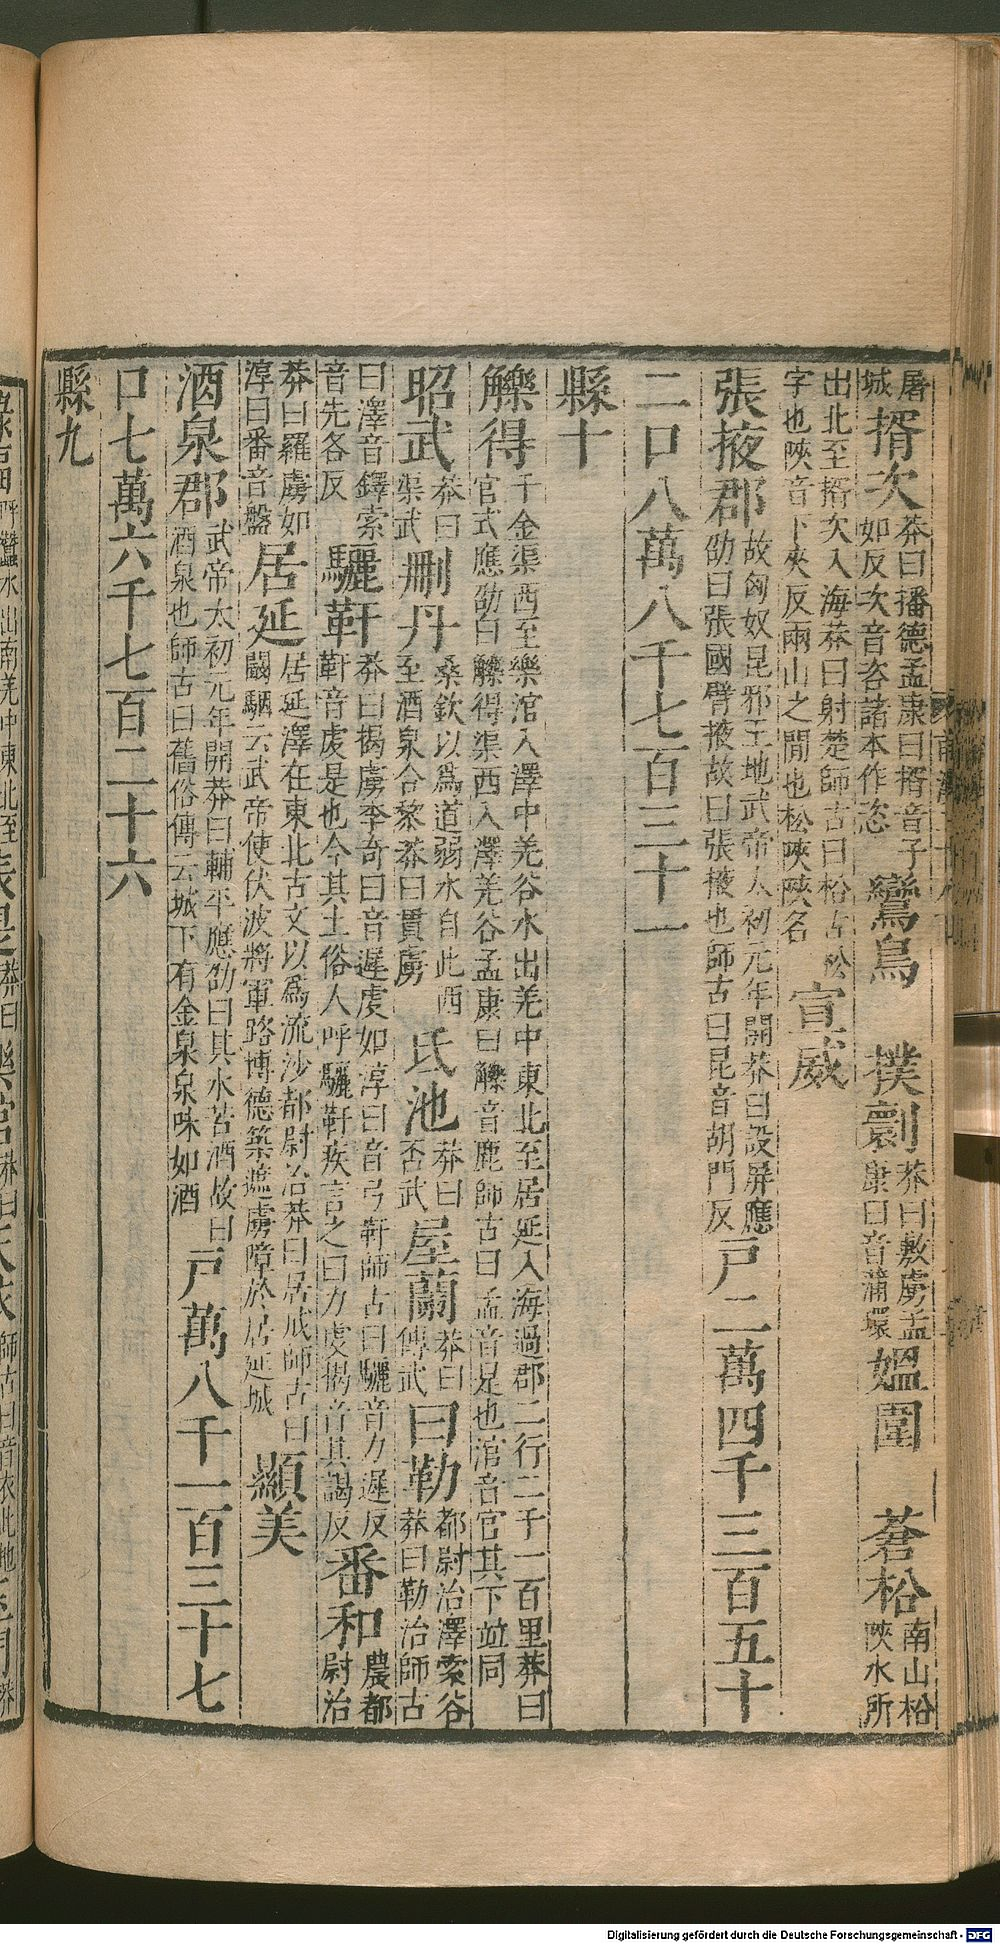 屠城揟次莽曰播德孟康曰揟音子如反次音咨諸本作恣鸞鳥撲𠟺莽曰敷虜孟康曰音蒲環媼圍蒼松南山松陝水所
出北至揟次入海莽曰射楚師古曰松古松字也陝音下夾反兩山之間也松陝陝名宣威
張掖郡故匈奴昆邪王地武帝太初元年開莽曰設屏應劭曰張國臂掖故曰張掖也師古曰昆音胡門反戸二萬四千三百五十
二口八萬八千七百三十一
縣十
觻得千金渠西至樂涫入澤中羌谷水出羌中東北至居延入海過郡二行二千一百里莽曰官式應劭曰觻得渠西入澤羌谷孟康曰觻音鹿師古曰孟音是也涫音官其下竝同
昭武莽曰渠武刪丹桑欽以爲道弱水自此西至酒泉合黎莽曰貫虜氐池莽曰否武屋蘭莽曰傳武曰勒都尉治澤索谷莽曰勒治師古
曰澤音鐸索音先各反驪靬莽曰揭虜李奇曰音遲虔如淳曰音弓靬師古曰驪音力遲反靬音虔是也今其土俗人呼驪靬疾言之曰力虔揭音其謁反番和農都尉治
莽曰羅虜如淳曰番音盤居延居延澤在東北古文以爲流沙都尉治莽曰居成師古曰闞駰云武帝使伏波將軍路博德築遮虜障於居延城顯美
酒泉郡武帝太初元年開莽曰輔平應劭曰其水苦酒故曰酒泉也師古曰舊俗傳云城下有金泉泉味如酒戸萬八千一百三十七
口七萬六千七百二十六
縣九
Digitalisierung gefördert durch die Deutsche Forschungsgemeinschaft - DFG